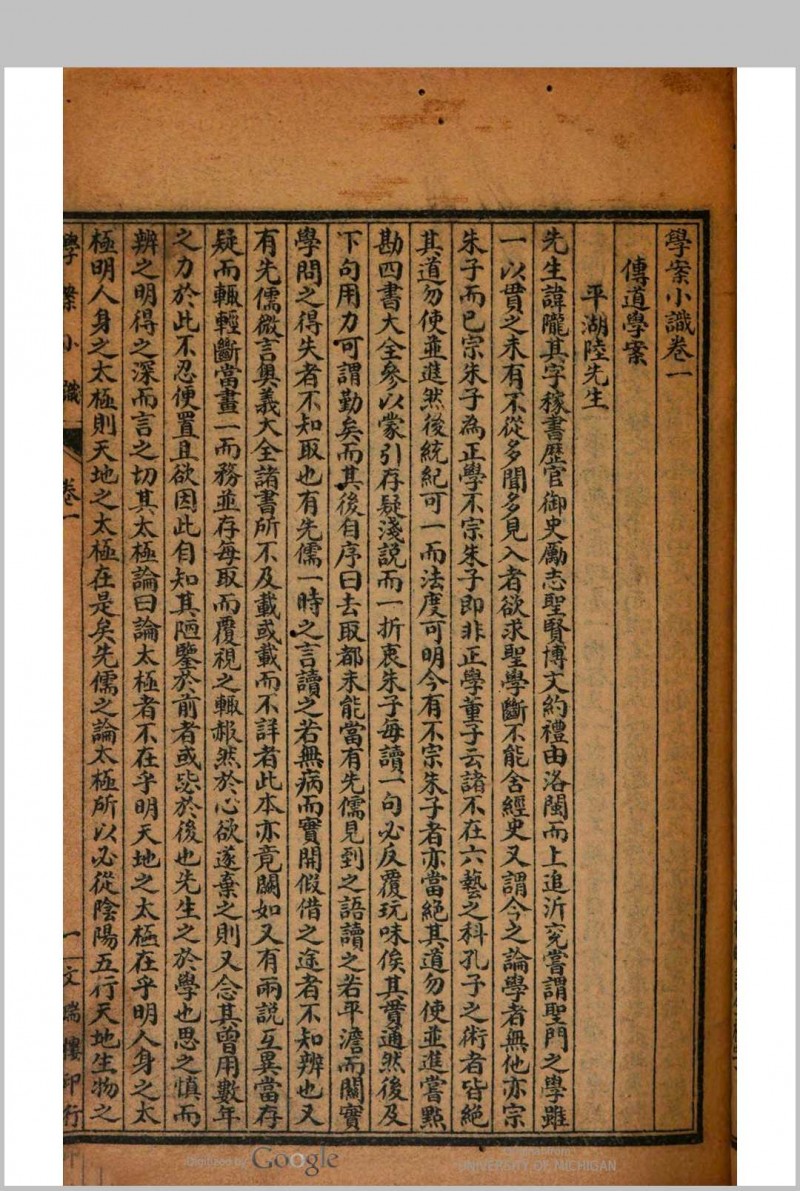 學案小識卷一
傳道學案
平湖陸先生
先生諱隴其字稼書歷官御史勵志聖賢博文約禮由洛閩而上追沂兗嘗謂聖門之學雖
一以貫之未有不從多聞多見入者欲求聖學斷不能舍經史又謂今之論學者無他亦宗
朱子而已宗朱子為正學不宗朱子即非正學董子云諸不在六藝之科孔子之術者皆絕
其道勿使並進然後統紀可一而法度可明今有不宗朱子者亦當絕其道勿使並進嘗點
勘四書大全參以蒙引存疑淺說而一折衷朱子每讀一句必反覆玩味俟其貫通然後及
下句用力可謂勤矣而其後自序曰去取都未能當有先儒見到之語讀之若平澹而關實
學問之得失者不知取也有先儒一時之言讀之若無病而實開假借之途者不知辨也又
有先儒微言奧義大全諸書所不及載或載而不詳者此本亦竟闕如又有兩說互異當存
疑而輒輕斷當畫一而務並存每取而覆視之輒赧然於心欲遂棄之則又念其曾用數年
之力於此不忍便置且欲因此自知其陋鑒於前者或毖於後也先生之於學也思之慎而
辨之明得之深而言之切其太極論曰論太極者不在乎明天地之太極在乎明人身之太
極明人身之太極則天地之太極在是矣先儒之論太極所以必從陰陽五行天地生物之
學案小識 卷一 一 文瑞樓印行
Digitized by Google
Original from
UNIVERSITY OF MICHIGAN